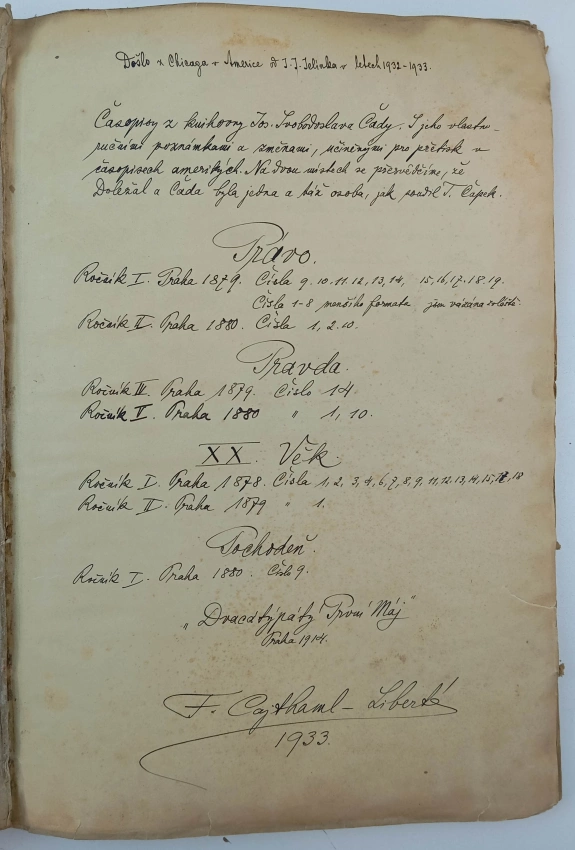 Došlo z Chicaga v Americe od J. J. Jelinka v letech 1932-1933.
Časopisy z knihovny Jos. Svobodoslava Čady. S jeho vlastno-
ručními poznámkami a změnami, učiněnými pro přetisk v
časopisech amerikých. Na dvou místech se přesvědčíme, že
Doležal a Čada byla jedna a táž osoba, jak soudil T. Čapek.
Právo.
Ročník I. Praha 1879. Čísla 9. 10. 11. 12, 13, 14, 15, 16, 17. 18. 19.
Čísla 1-8 menšího formatu jsou vázána zvláště.
Ročník II. Praha 1880. Čísla 1, 2. 10.
Pravda.
Ročník III. Praha 1879. Číslo 14.
Ročník V. Praha 1880 " 1, 10.
XX. Věk.
Ročník I. Praha 1878. Čísla 1, 2, 3, 4, 6, 7, 8, 9, 11, 12. 13, 14, 15, 17, 18
Ročník II. Praha 1879 " 1.
Pochodeň.
Ročník I. Praha 1880. Číslo 9.
„Dvacátýpátý První Máj"
Praha 1914.
F. Cajthaml-Liberté
1933.